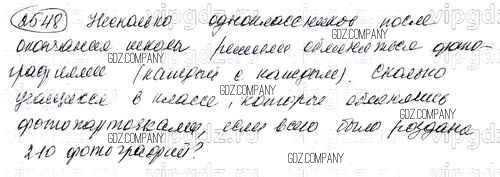 №548 Несколько одноклассников после
окончания школы решили обменяться фото-
графиями (каждый с каждым). Сколько
учащихся в классе, которые обменялись
фотокарточками, если всего было роздано
210 фотографий?
GDZ.COMPANY
GDZ.COMPANY
GDZ.COMPANY
GDZ.COMPANY
GDZ.COMPANY
GDZ.COMPANY